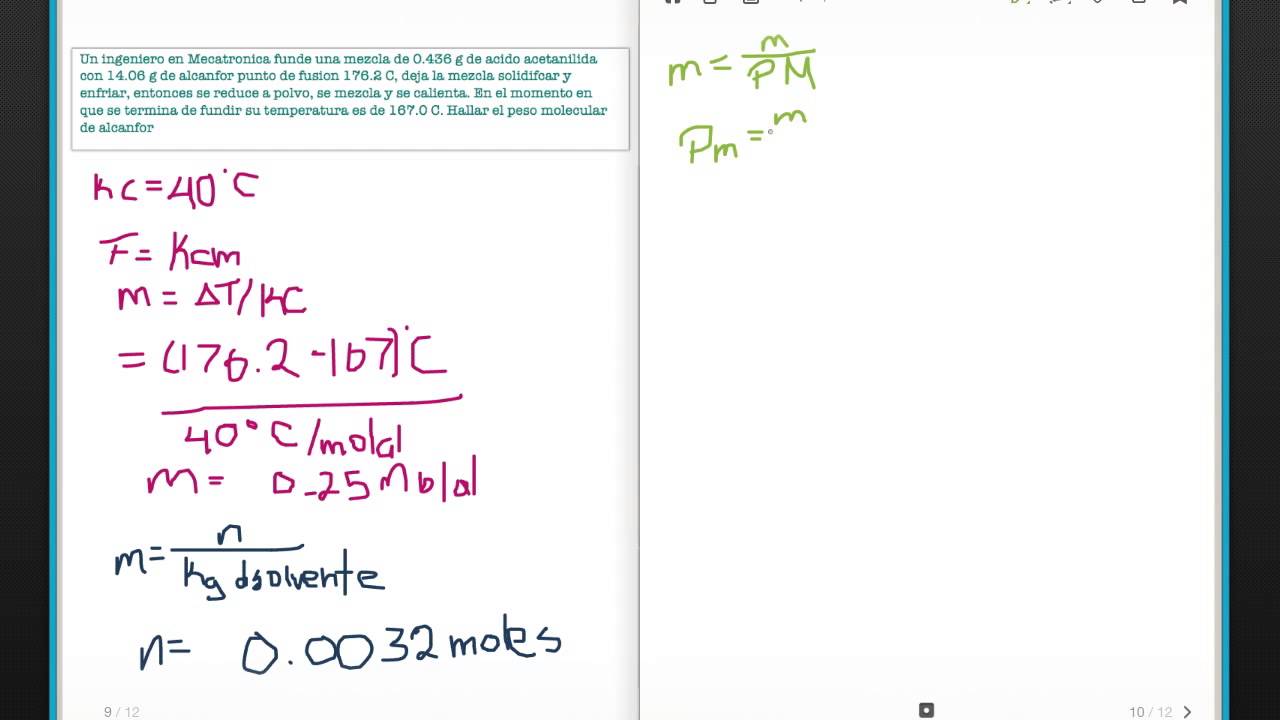 Un ingeniero en Mecatronica funde una mezcla de 0.436 g de acido acetanilida
con 14.06 g de alcanfor punto de fusion 176.2 C, deja la mezcla solidifcar y
enfriar, entonces se reduce a polvo, se mezcla y se calienta. En el momento en
que se termina de fundir su temperatura es de 167.0 C. Hallar el peso molecular
de alcanfor
Kc = 40°C
F = Kcm
m = ΔT/KC
= (176.2 - 167)°C
40°C/molal
m = 0.25 Molal
m = n
kg dsolvente
n = 0.0032 moles
9 / 12
m = m
PM
Pm = m
10 / 12